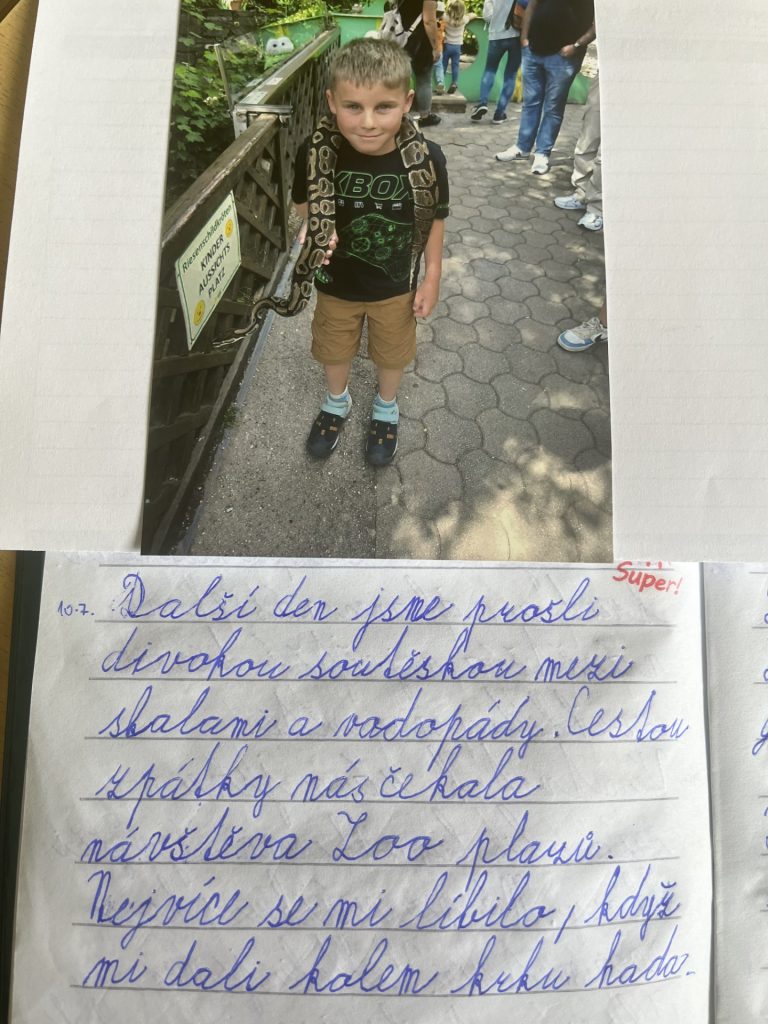 XBOX
Riesenschildkröten
KINDER
AUSSICHTS
PLATZ
Super!
10.7. Další den jsme prošli
divokou soutěskou mezi
skalami a vodopády. Cestou
zpátky nás čekala
návštěva Zoo plazů.
Nejvíce se mi líbilo, když
mi dali kolem krku hada.